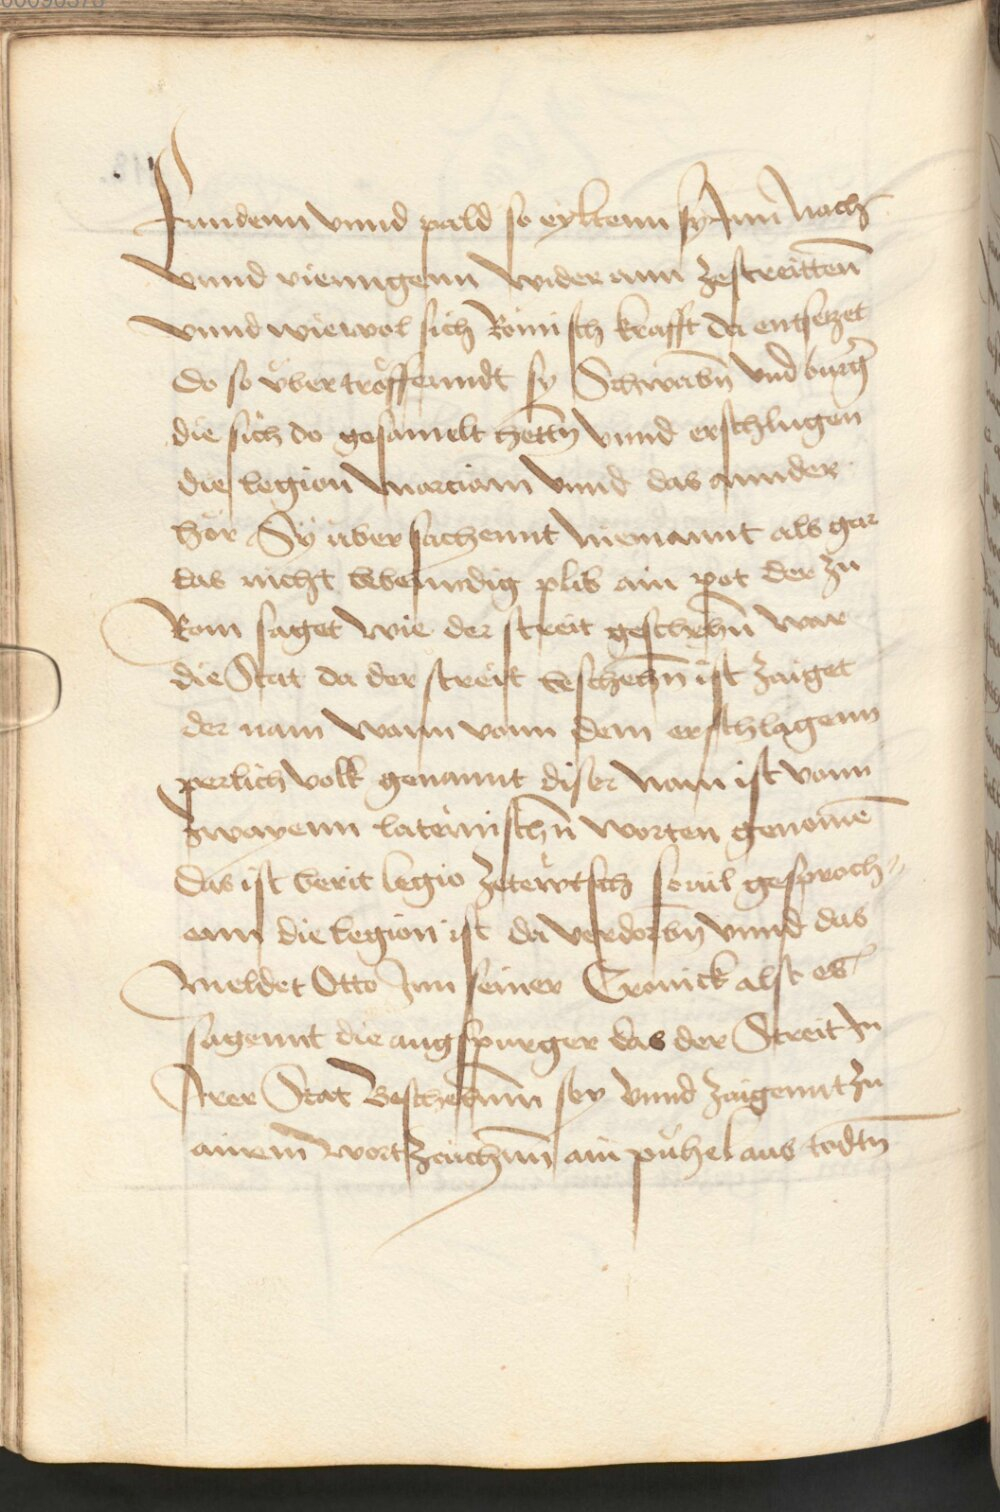 00090376
Fundenn vnnd pald so eyltenn sy Inn nach
vnnd viengenn wider ann zestreittenn
vnnd wiewol sich Römisch krafft da entsetzet
do so vͤbertröffenndt sy Schwabn̄ vnd burg̃
die sich do gesamelt hettn̄ vnnd erschlugen
die legion marciam vnnd das annder
hör Sÿ über sachennt niemannt als gar
das nicht lebenndig plib ain pot der zu
Rom saget wie der streit geschehn̄ war
die Stat da der streit beschechn̄ ist zaiget
der nam wann vonn dem erschlagenn
perlich volk genannt diser nam ist vonn
zwayenn lateinischn̄ worten genomē
das ist Perit legio zetewtsch souil gesproch-
enn die legion ist da verdorbn̄ vnnd das
meldet Otto Inn seiner Cronick alst es
sagennt die augspurger das der Streit In
Irer Stat beschechenn sey vnnd zaigennt zu
ainem wortzaichenn̄ ain pühel aus todtn̄